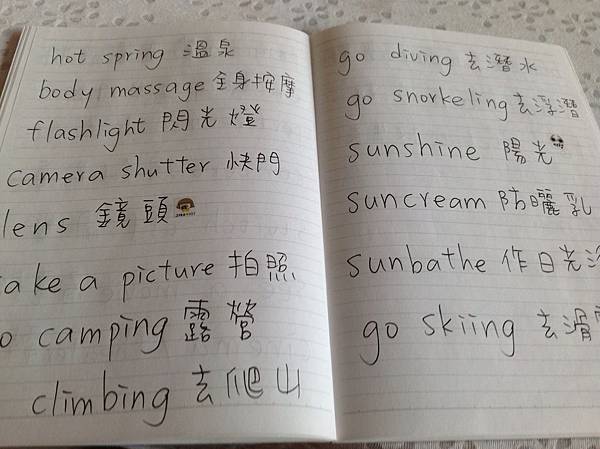 hot spring 溫泉
body massage 全身按摩
flashlight 閃光燈
camera shutter 快門
lens 鏡頭
take a picture 拍照
go camping 露營
climbing 去爬山
go diving 去潛水
go snorkeling 去浮潛
sunshine 陽光
suncream 防曬乳
sunbathe 作日光
go skiing 去滑